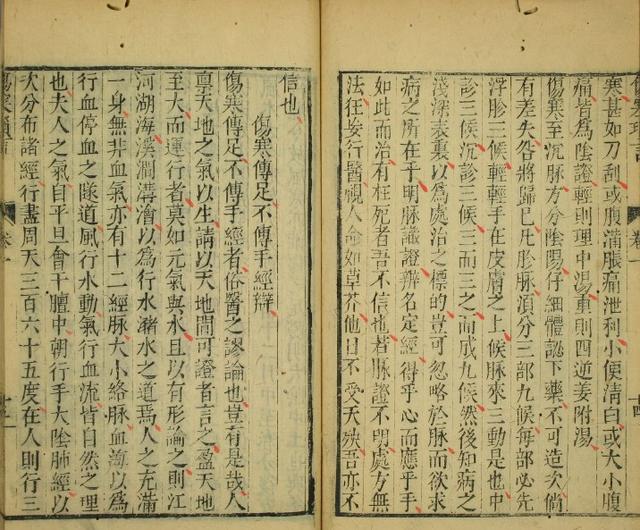 寒甚如刀刮或腹滿脹痛泄利小便清白或大小腹
痛皆為陰證輕則理中湯重則四逆姜附湯
傷寒至沉脉方分陰陽仔細體認下藥不可造次倘
有差失咎將歸已凡胗脉須分三部九候每部必先
浮胗三候輕輕手在皮膚之上候脉來三動是也中
診三候沉診三候三而三之而成九候然後知病之
淺深表裏以為處治之標的豈可忽略於脉而欲求
病之所在乎明脉識證辨名定經得乎心而應乎手
如此而治有枉死者吾不信也若脉證不明處方無
法徃妄行醫視人命如草芥他日不受天殃吾亦不
信也
傷寒傳足不傳手經辯
傷寒傳足不傳手經者俗醫之謬論也豈有是哉人
稟天地之氣以生請以天地間可證者言之盈天地
至大而運行者莫如元氣與水且以有形論之則江
河湖海溪澗溝澮以為行水瀦水之道焉人之充滿
一身無非血氣亦有十二經脉大小絡脉血海以為
行血停血之隧道風行水動氣行血流皆自然之理
也夫人之氣自平旦會于膻中朝行手大陰肺經以
次分布諸經行盡周天三百六十五度在人則行三
卷一